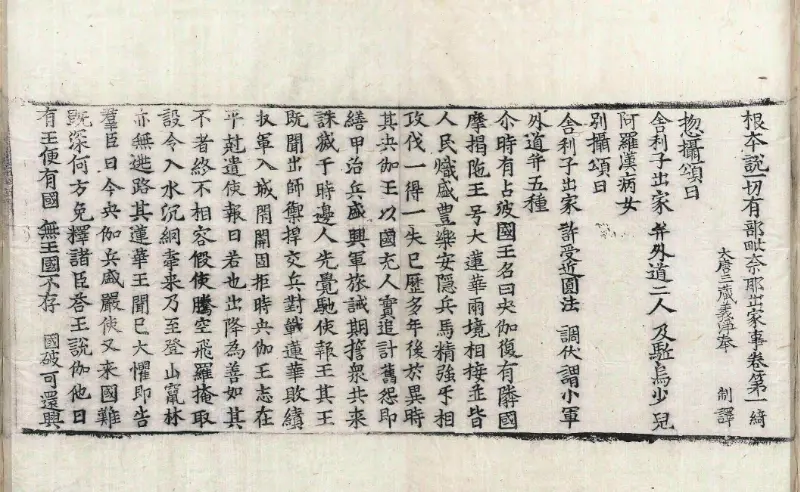 根本說一切有部毗奈耶出家事卷第一 綺
大唐三藏義淨奉 制譯
惣攝頌曰
舍利子出家 并外道二人 及駈烏少兒
阿羅漢病女
別攝頌曰
舍利子出家 許受近圓法 調伏謂小軍
外道并五種
尒時有占波國王名曰央伽復有隣國
摩揭陁王号大蓮華兩境相接並皆
人民熾盛豊樂安隱兵馬精強乎相
攻伐一得一失已歷多年後於異時
其央伽王以國充人實追計舊怨即
繕甲治兵盛興軍旅誡期誓衆共来
誅滅于時邊人先覺馳使報王其王
旣聞出師禦捍交兵對戰蓮華敗績
収軍入城閇關固拒時央伽王志在
平尅遣使報曰若也出降為善如其
不者終不相容假使騰空飛羅掩取
設令入水沉網牽来乃至登山竄林
亦無逃路其蓮華王聞已大懼即告
羣臣曰今央伽兵盛嚴使又来國難
旣深何方免釋諸臣咨王說伽他曰
有王便有國 無王國不存 國破可還興